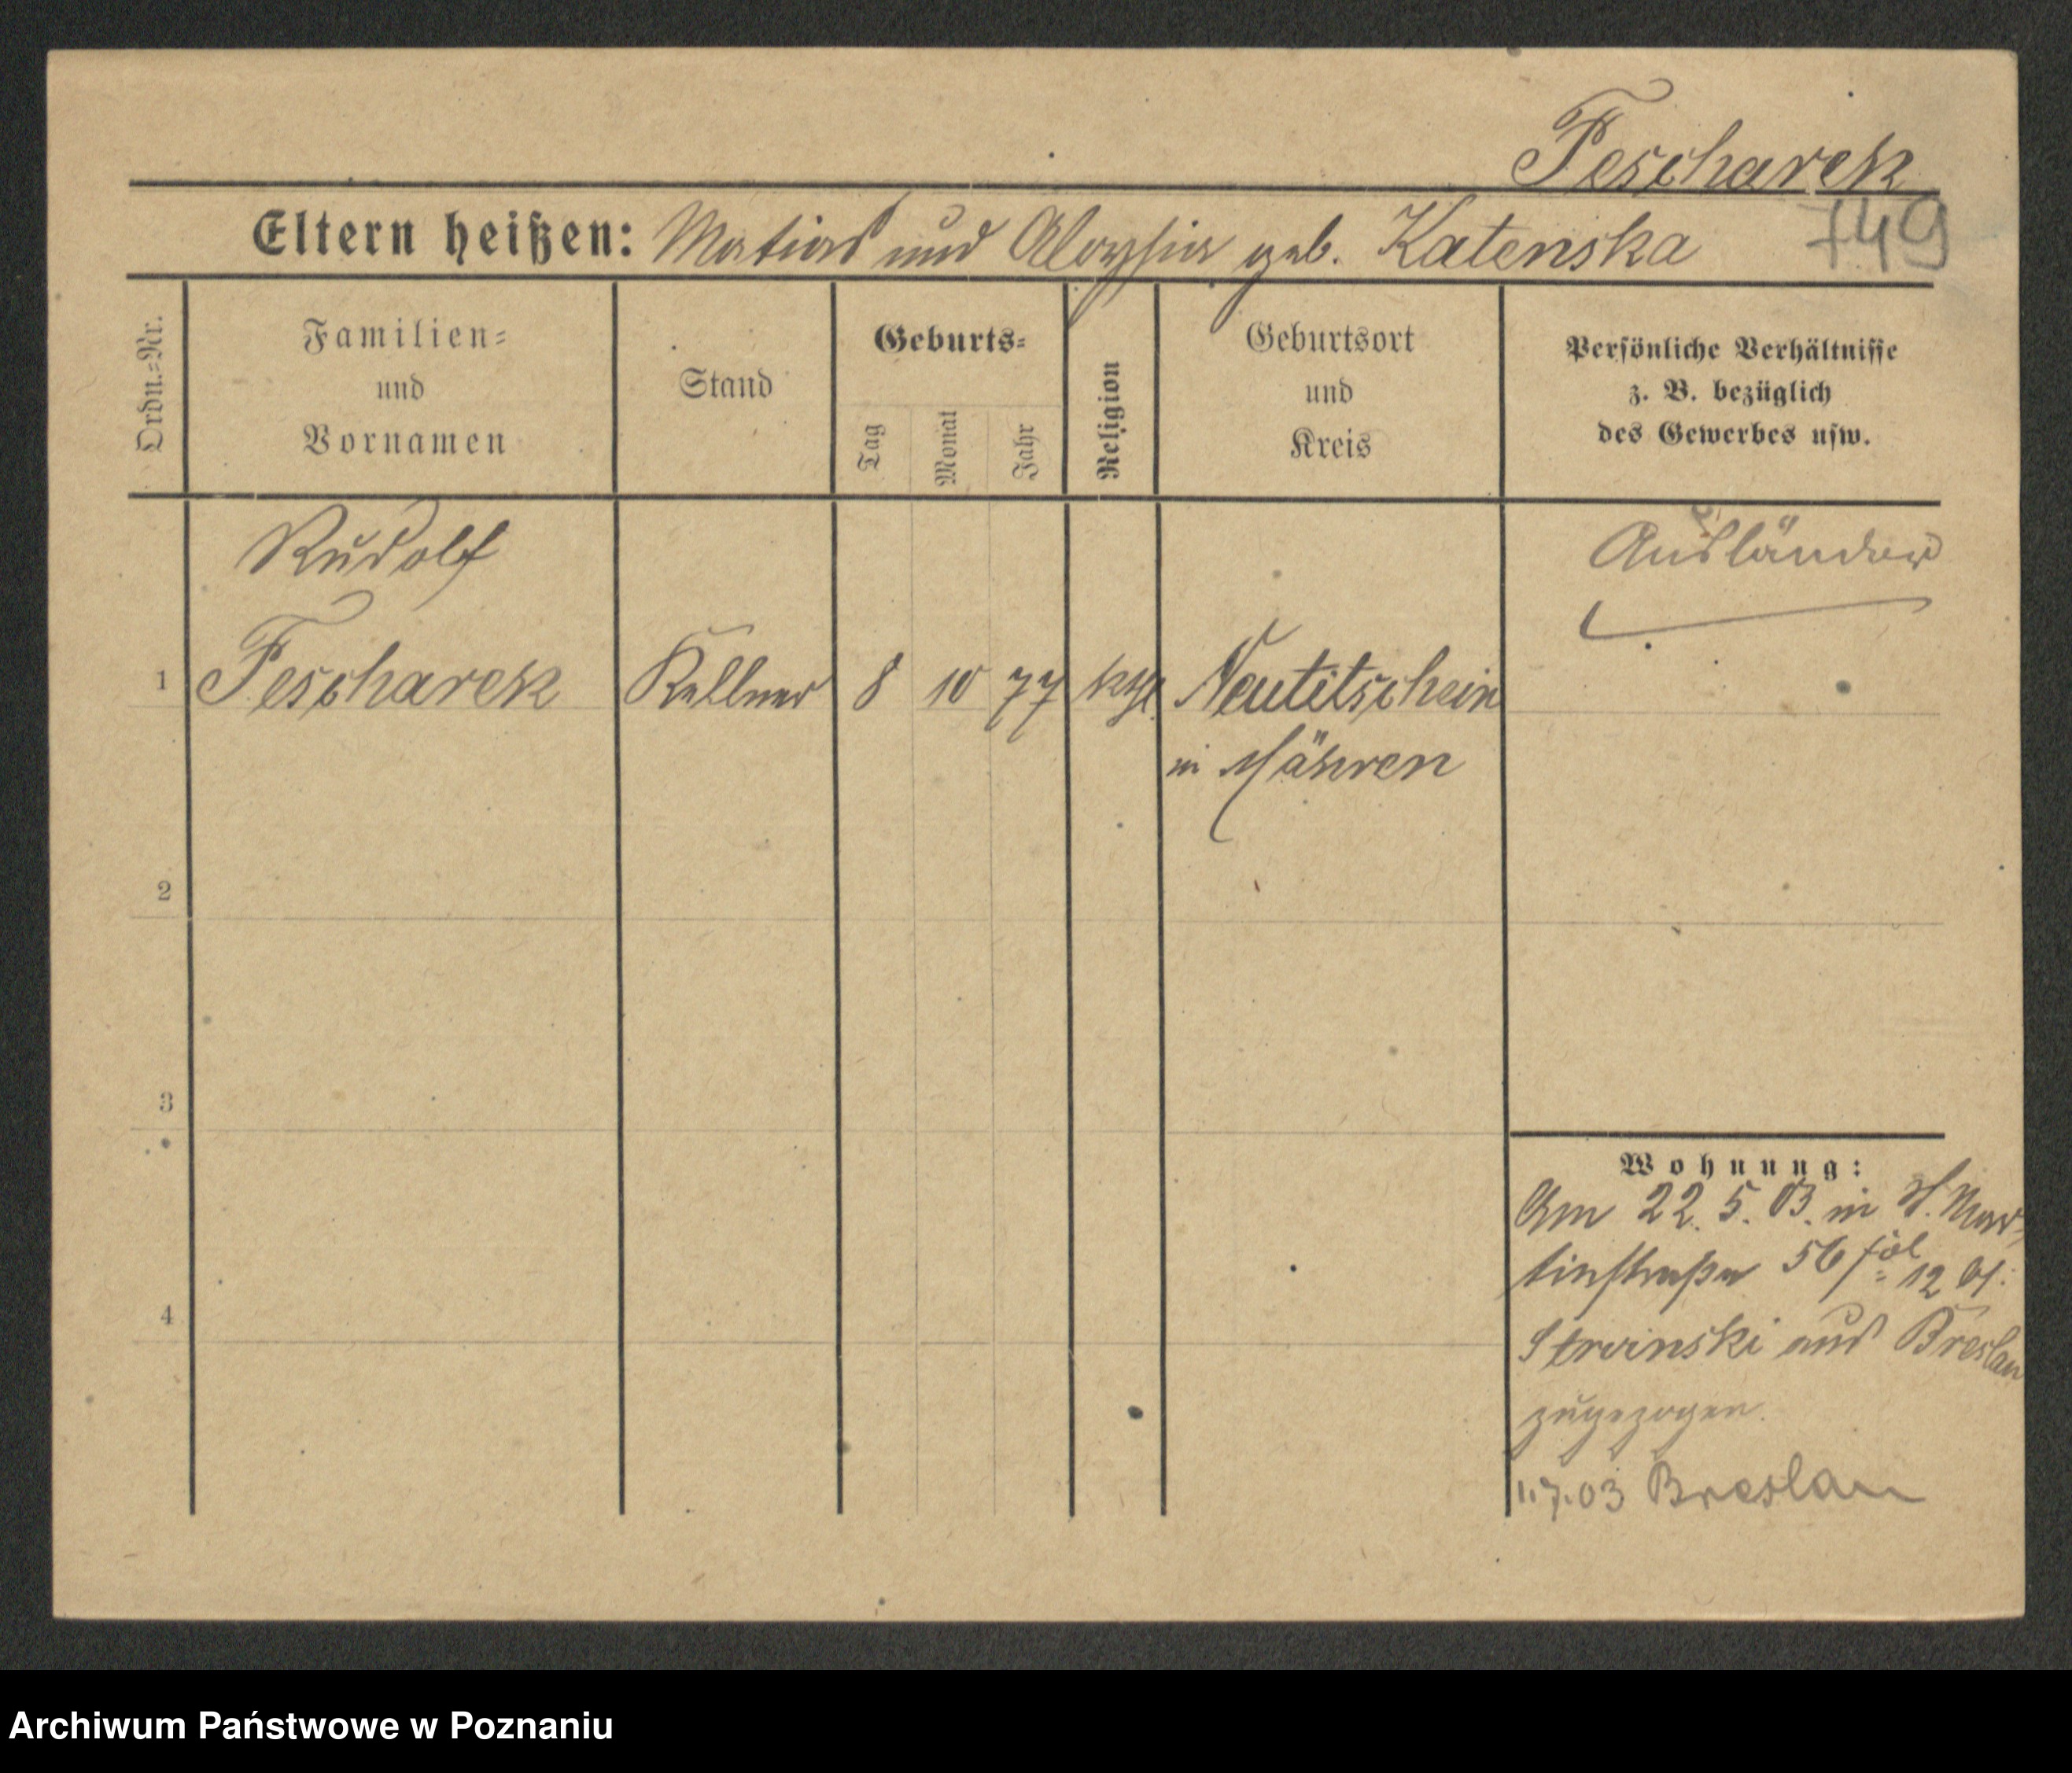 Pescharek
Eltern heißen: Matias und Aloysia geb. Katenska 749
Ordn.=Nr.
Familien=
und
Vornamen
Stand
Geburts=
Tag
Monat
Jahr
Religion
Geburtsort
und
Kreis
Persönliche Verhältnisse
z. B. bezüglich
des Gewerbes usw.
Rudolf
Ausländer
1 Pescharek Kellner 8 10 77 kth. Neutitschein
in Mähren
2
3
4
Wohnung:
Am 22. 5. 03. in St. Mar-
tinstraße 56 12
aus Breslau
zugezogen.
1.7.03 Breslau
Archiwum Państwowe w Poznaniu